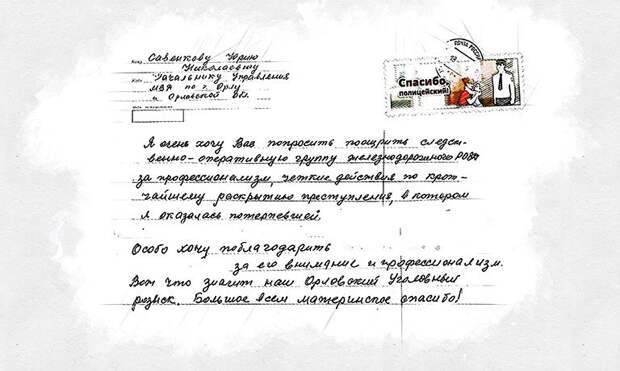 Кому Савенкову Юрию
Николаевичу
Куда Начальнику Управления
МВД по г. Орлу
и Орловской обл.
ПОЧТА РОССИИ
Спасибо,
полицейский!
Я очень хочу Вас попросить поощрить следст-
венно-оперативную группу железнодорожного РОВД
за профессионализм, четкие действия по крот-
чайшему раскрытию преступления, в котором
я оказалась потерпевшей.
Особо хочу поблагодарить
за его внимание и профессионализм.
Вот что значит наш Орловский Уголовный
розыск. Большое всем материнское спасибо!